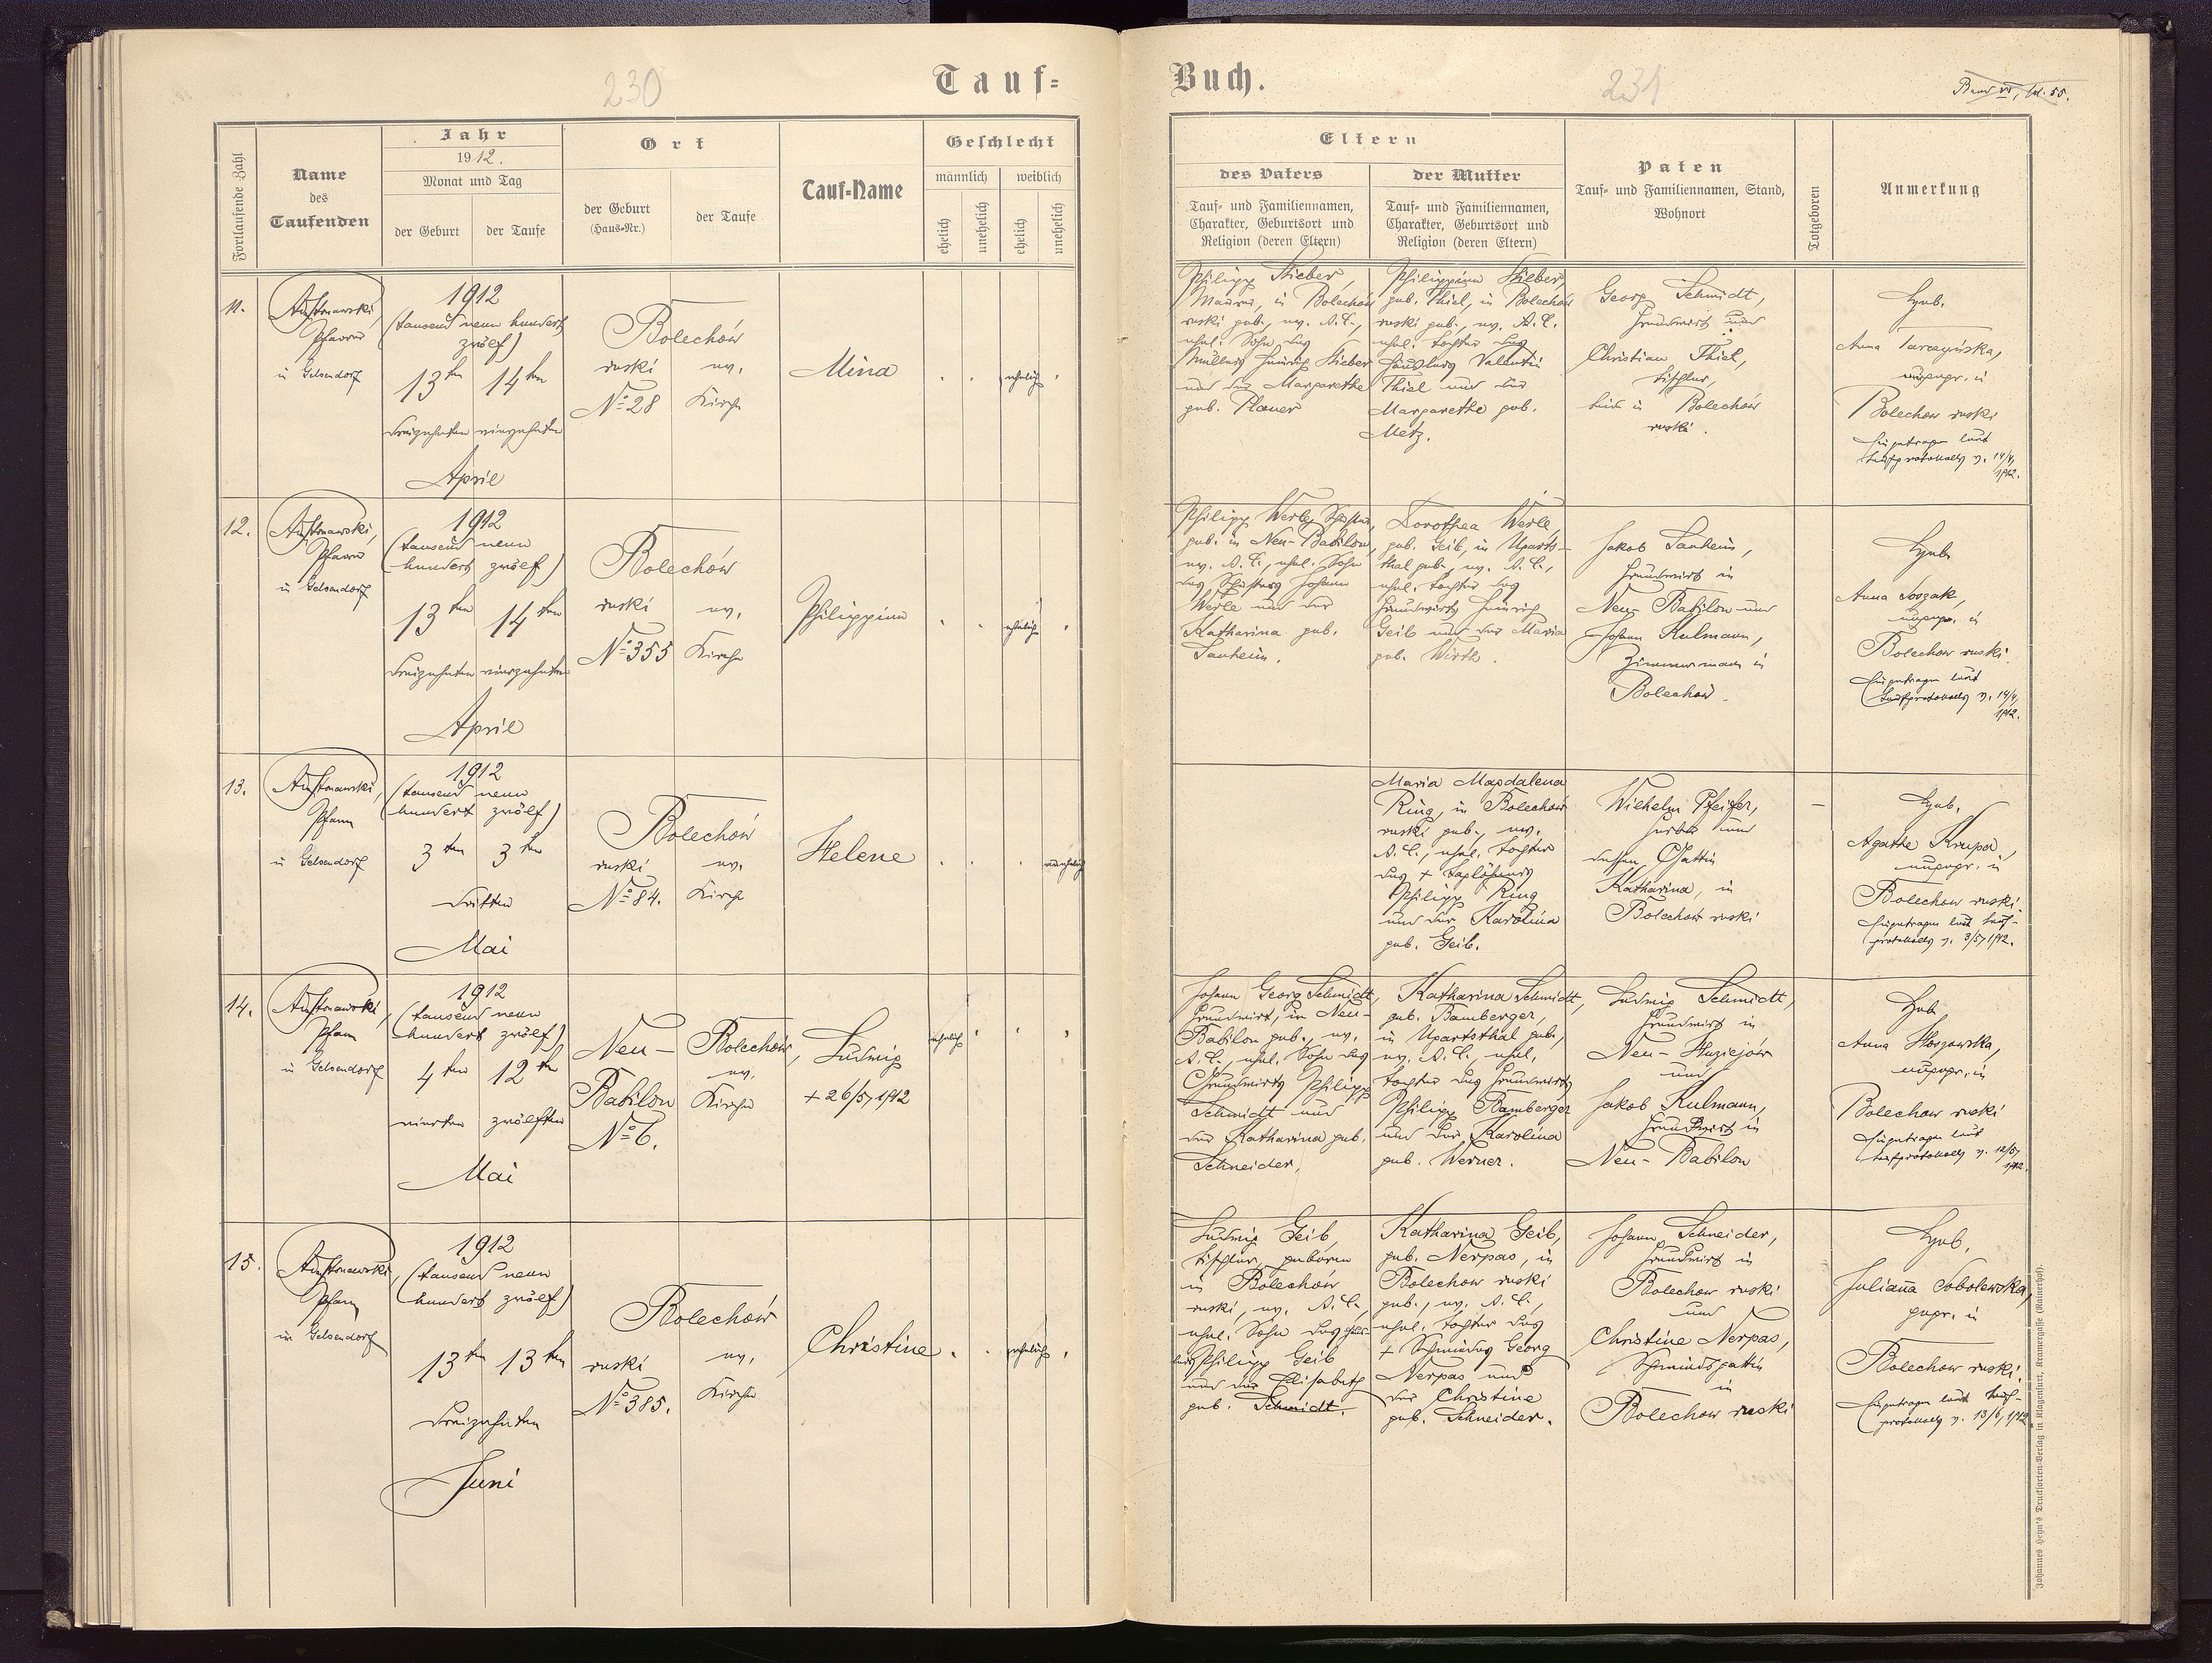 230
Tauf-
Fortlaufende Zahl
Name
des
Taufenden
Jahr
1912.
Monat und Tag
der Geburt
der Taufe
Ort
der Geburt
(Haus-Nr.)
der Taufe
Tauf-Name
Geschlecht
männlich
weiblich
ehelich
unehelich
ehelich
unehelich
11.
Pfarrer
in Gelsendorf
1912
(tausend neun hundert
zwölf)
13ten 14ten
dreizehnten vierzehnten
April
Bolechów
ruski
No 28
ev.
Kirche
Mina
ehelich
12.
Pfarrer
in Gelsendorf
1912
(tausend neun
hundert zwölf)
13ten 14ten
dreizehnten vierzehnten
April
Bolechów
ruski
No 355
ev.
Kirche
Philippine
ehelich
13.
Pfarrer
in Gelsendorf
1912
(tausend neun
hundert zwölf)
3ten 3ten
dritten
Mai
Bolechów
ruski
No 84.
ev.
Kirche
Helene
unehelich
14.
Pfarrer
in Gelsendorf
1912
(tausend neun
hundert zwölf)
4ten 12ten
vierten zwölften
Mai
Neu-
Babilon
No 6.
Bolechów,
ev.
Kirche
Ludwig
+ 26/5, 1912
ehelich
15.
Pfarrer
in Gelsendorf
1912
(tausend neun
hundert zwölf)
13ten 13ten
dreizehnten
Juni
Bolechów
ruski
No 385.
ev.
Kirche
Christine
ehelich
Buch.
231
Band VI, fol. 55.
Eltern
des Vaters
Tauf- und Familiennamen,
Charakter, Geburtsort und
Religion (deren Eltern)
der Mutter
Tauf- und Familiennamen,
Charakter, Geburtsort und
Religion (deren Eltern)
Paten
Tauf- und Familiennamen, Stand,
Wohnort
Totgeboren
Anmerkung
Philipp Stieber,
Maurer, in Bolechów
ruski geb., ev. A. C.,
ehel. Sohn des
Müllers Heinrich Stieber
und der Margarethe
geb. Planer
Philippine Stieber,
geb. Thiel, in Bolechów
ruski geb., ev. A. C.
ehel. Tochter des
Häuslers Valentin
Thiel und der
Margarethe geb.
Metz.
Georg Schmidt,
Grundwirt und
Christian Thiel,
Tischler,
beide in Bolechów
ruski.
Heb.
Anna Tarczyńska,
ungepr. in
Bolechow ruski
Eingetragen laut
Taufprotokolls v. 14/4,
1912.
Philipp Werle, Schuster,
geb. in Neu-Babilon,
ev. A. C., ehel. Sohn
des Schusters Johann
Werle und der
Katharina geb.
Sauheim.
Dorothea Werle,
geb. Geib, in Ugarts-
thal geb., ev. A. C.,
ehel. Tochter des
Grundwirts Heinrich
Geib und der Maria
geb. Wirth.
Jakob Sauheim,
Grundwirt in
Neu-Babilon und
Johann Kulmann,
Zimmermann in
Bolechów.
Hebe
Anna Soszak,
ungepr. in
Bolechow ruski.
Eingetragen laut
Taufprotokolls v. 14/4,
1912.
Maria Magdalena
Ring, in Bolechów
ruski geb., ev.
A. C., ehel. Tochter
des + Taglöhners
Philipp Ring
und der Karolina
geb. Geib.
Wilhelm Pfeifer,
Färber und
dessen Gattin
Katharina, in
Bolechow ruski
–
Heb.
Agathe Krupa,
ungepr. in
Bolechow ruski
Eingetragen laut Tauf-
protokolls v. 3/5, 1912.
Johann Georg Schmidt,
Grundwirt, in Neu-
Babilon geb., ev.
A. C., ehel. Sohn des
Grundwirts Philipp
Schmidt und
der Katharina geb.
Schneider,
Katharina Schmidt,
geb. Bamberger,
in Ugartsthal geb.,
ev. A. C., ehel.
Tochter des Grundwirts
Philipp Bamberger
und der Karolina
geb. Werner.
Ludwig Schmidt,
Grundwirt in
Neu-Huziejów
und
Jakob Kulmann,
Grundwirt in
Neu-Babilon
Heb.
Anna Hoszowska,
ungepr. in
Bolechow ruski
Eingetragen laut
Taufprotokolls v. 12/5,
1912.
Ludwig Geib,
Tischler, geboren
in Bolechów
ruski, ev. A. C.,
ehel. Sohn des Häus-
lers Philipp Geib
und der Elisabeth
geb. Schmidt.
Katharina Geib,
geb. Nerpas, in
Bolechow ruski
geb., ev. A. C.,
ehel. Tochter des
+ Schmiedes Georg
Nerpas und
der Christine
geb. Schneider.
Johann Schneider,
Grundwirt in
Bolechow ruski
und
Christine Nerpas,
Schmiedsgattin
in
Bolechow ruski
Heb.
Julianna Sobolewska,
gepr. in
Bolechow ruski.
Eingetragen laut Tauf-
protokolls v. 13/6, 1912.
Johannes Heyn's Drucksorten-Verlag in Klagenfurt, Kramergasse (Rainerhof).